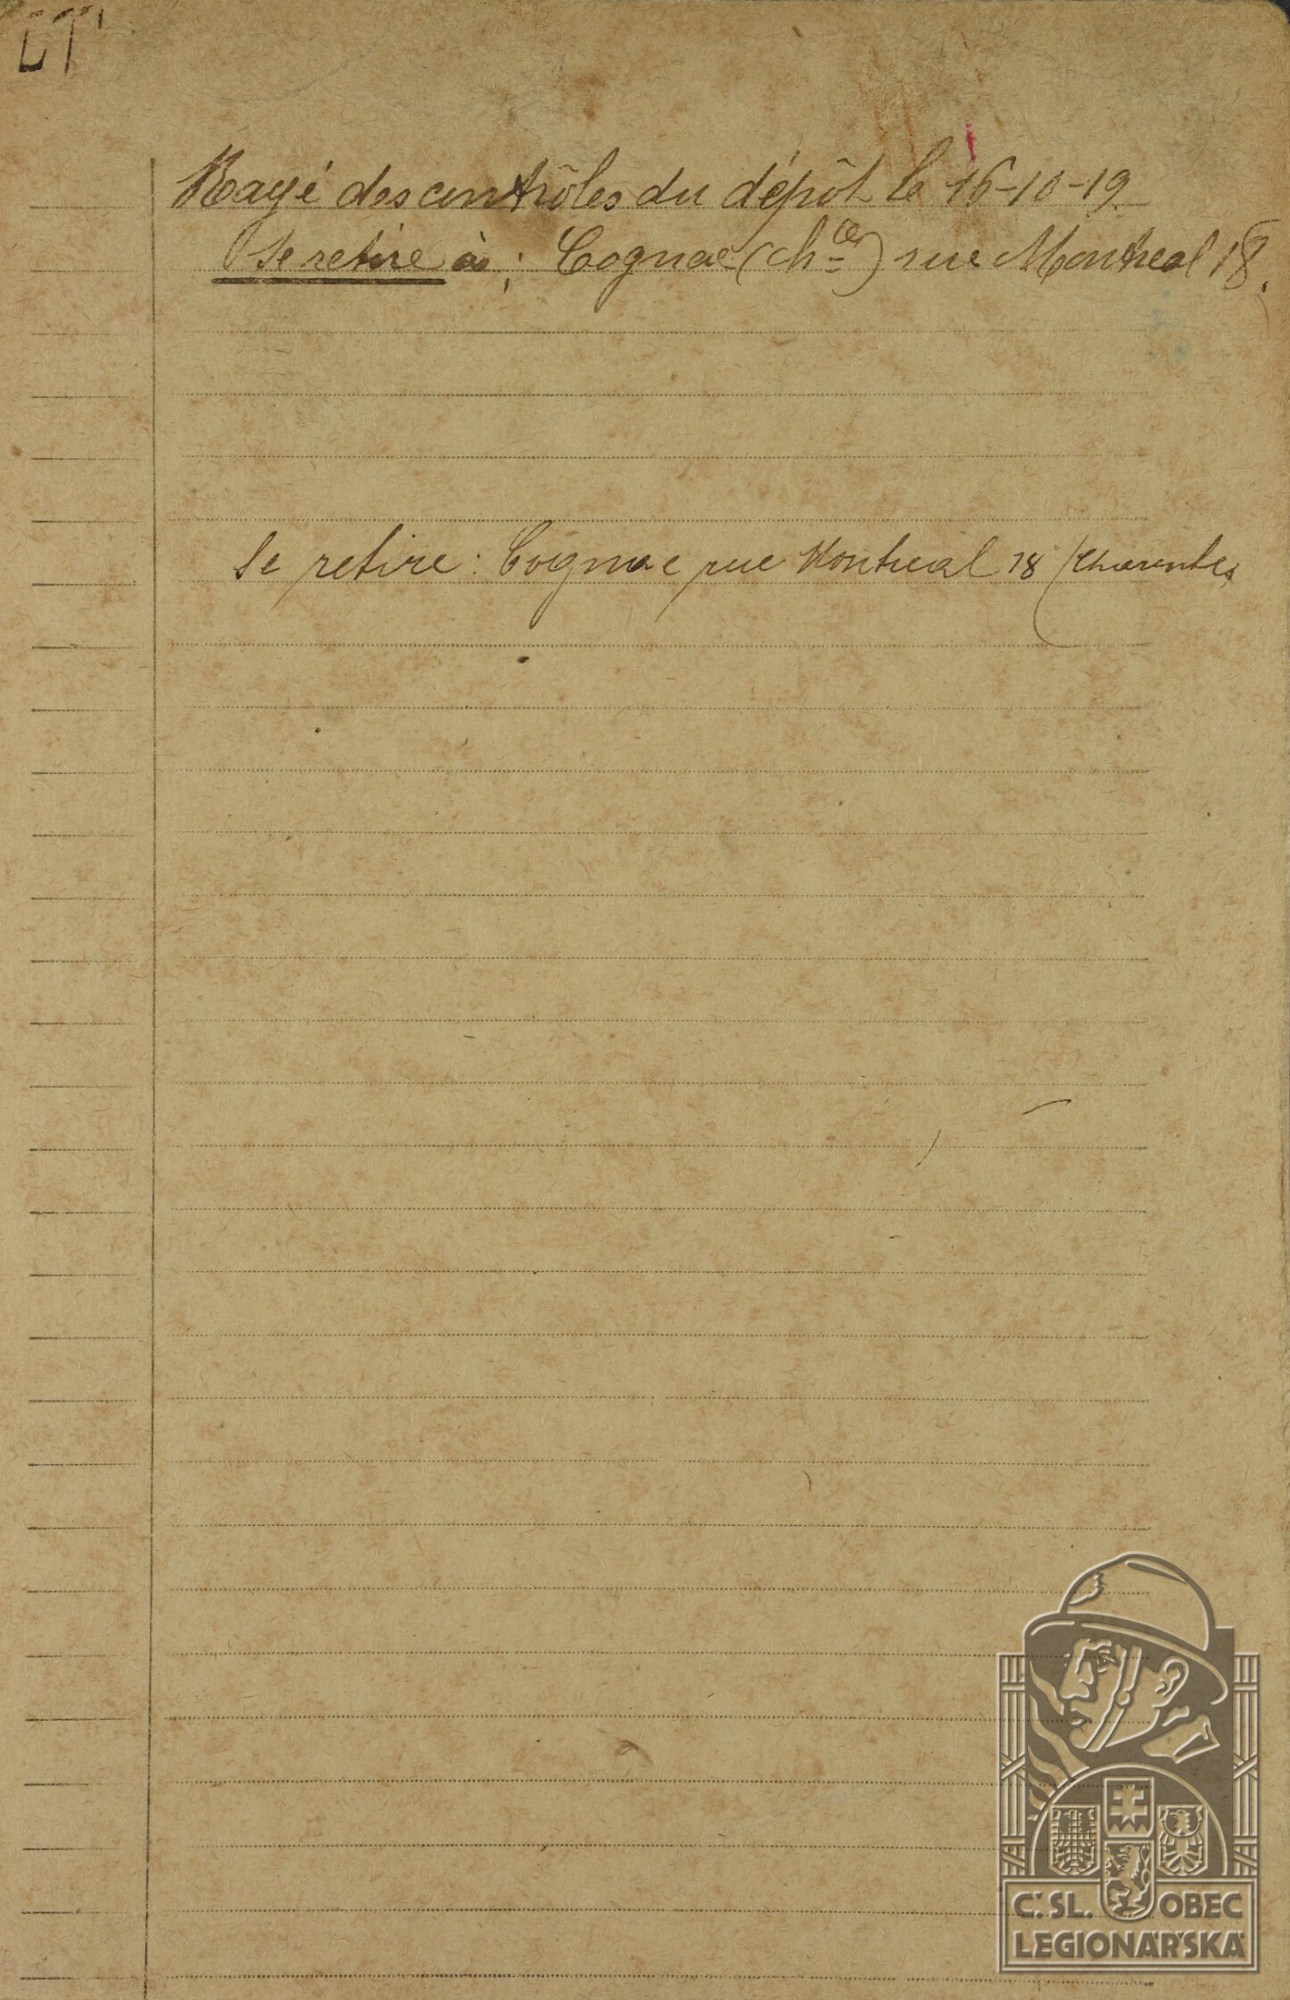 LT
Rayé des contrôles du dépôt le 16-10-19
Se retire à : Cognac (Ch^ce) rue Montreal 18.
Se retire : Cognac rue Montreal 18 (Charentes
Č. SL. OBEC
LEGIONÁŘSKÁ